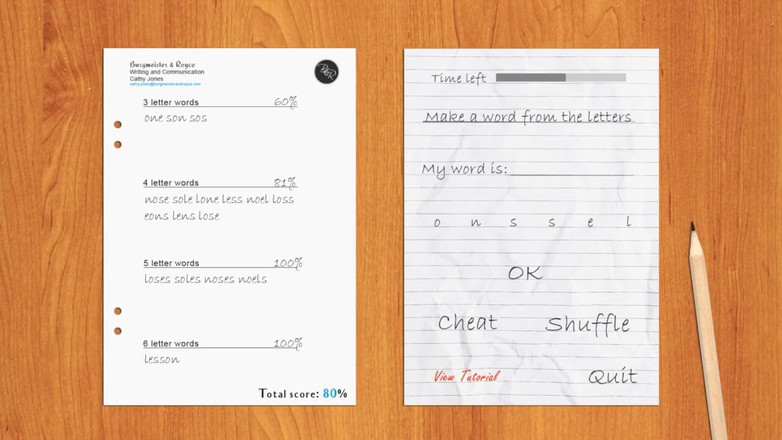 Burgmeister & Royce
Writing and Communication
Cathy Jones
cathy.jones@burgmeisterandroyce.com
B&R
3 letter words 60%
one son sos
4 letter words 81%
nose sole lone less noel loss
eons lens lose
5 letter words 100%
loses soles noses noels
6 letter words 100%
lesson
Total score: 80%
Time left
Make a word from the letters
My word is:
o n s s e l
OK
Cheat Shuffle
View Tutorial Quit